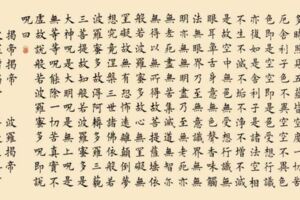 厄舍利子色不異空空不異色
色即是空空即是色受想行識
亦復如是舍利子是諸法空相
不生不滅不垢不淨不增不減
是故空中無色無受想行識無
眼耳鼻舌身意無色聲香味觸
法無眼界乃至無意識界無無
明亦無無明盡乃至無老死亦
無老死盡無苦集滅道無智亦
無得以無所得故菩提薩埵依
般若波羅蜜多故心無罣礙無
罣礙故無有恐怖遠離顛倒夢
想究竟涅槃三世諸佛依般若
波羅蜜多故得阿耨多羅三藐
三菩提故知般若波羅蜜多是
大神呪是大明呪是無上呪是
無等等呪能除一切苦真實不
虛故說般若波羅蜜多呪即說
呪曰
揭帝揭帝 波羅揭帝